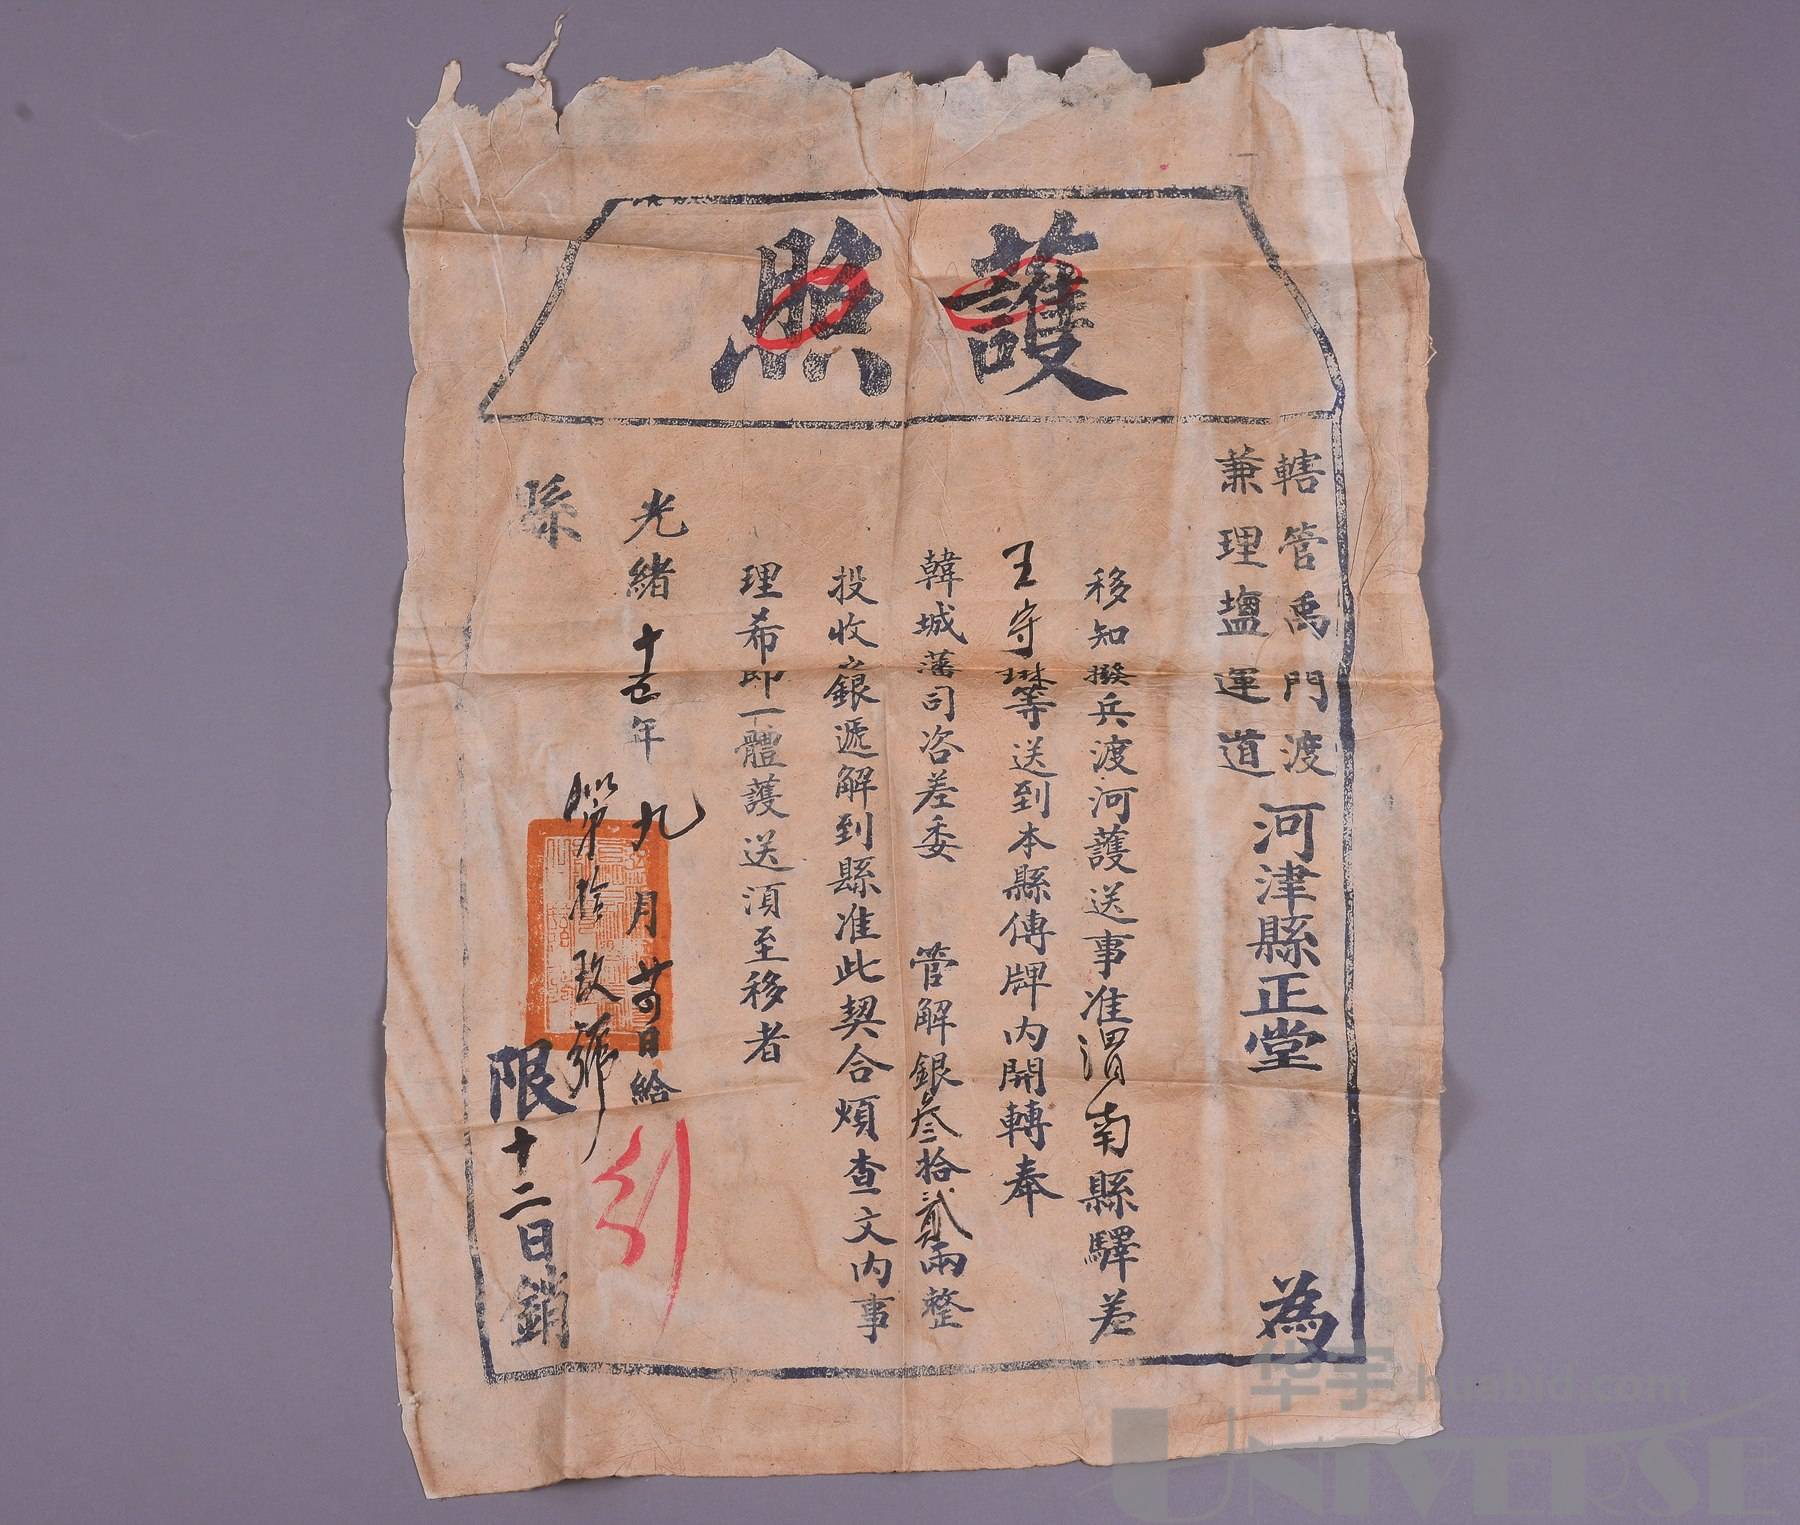 護照
轄管禹門渡
兼理鹽運道
河津縣正堂 為
移知撥兵渡河護送事准渭南縣驛差
王守琳等送到本縣傳牌內開轉奉
韓城藩司咨差委 管解銀叁拾貳兩整
投收銀遞解到縣准此契合煩查文內事
理希即一體護送湏至移者
光緒十五年九月廿 日給
第拾玖號
縣
限十二日銷
华宇 huabid.com
UNIVERSE